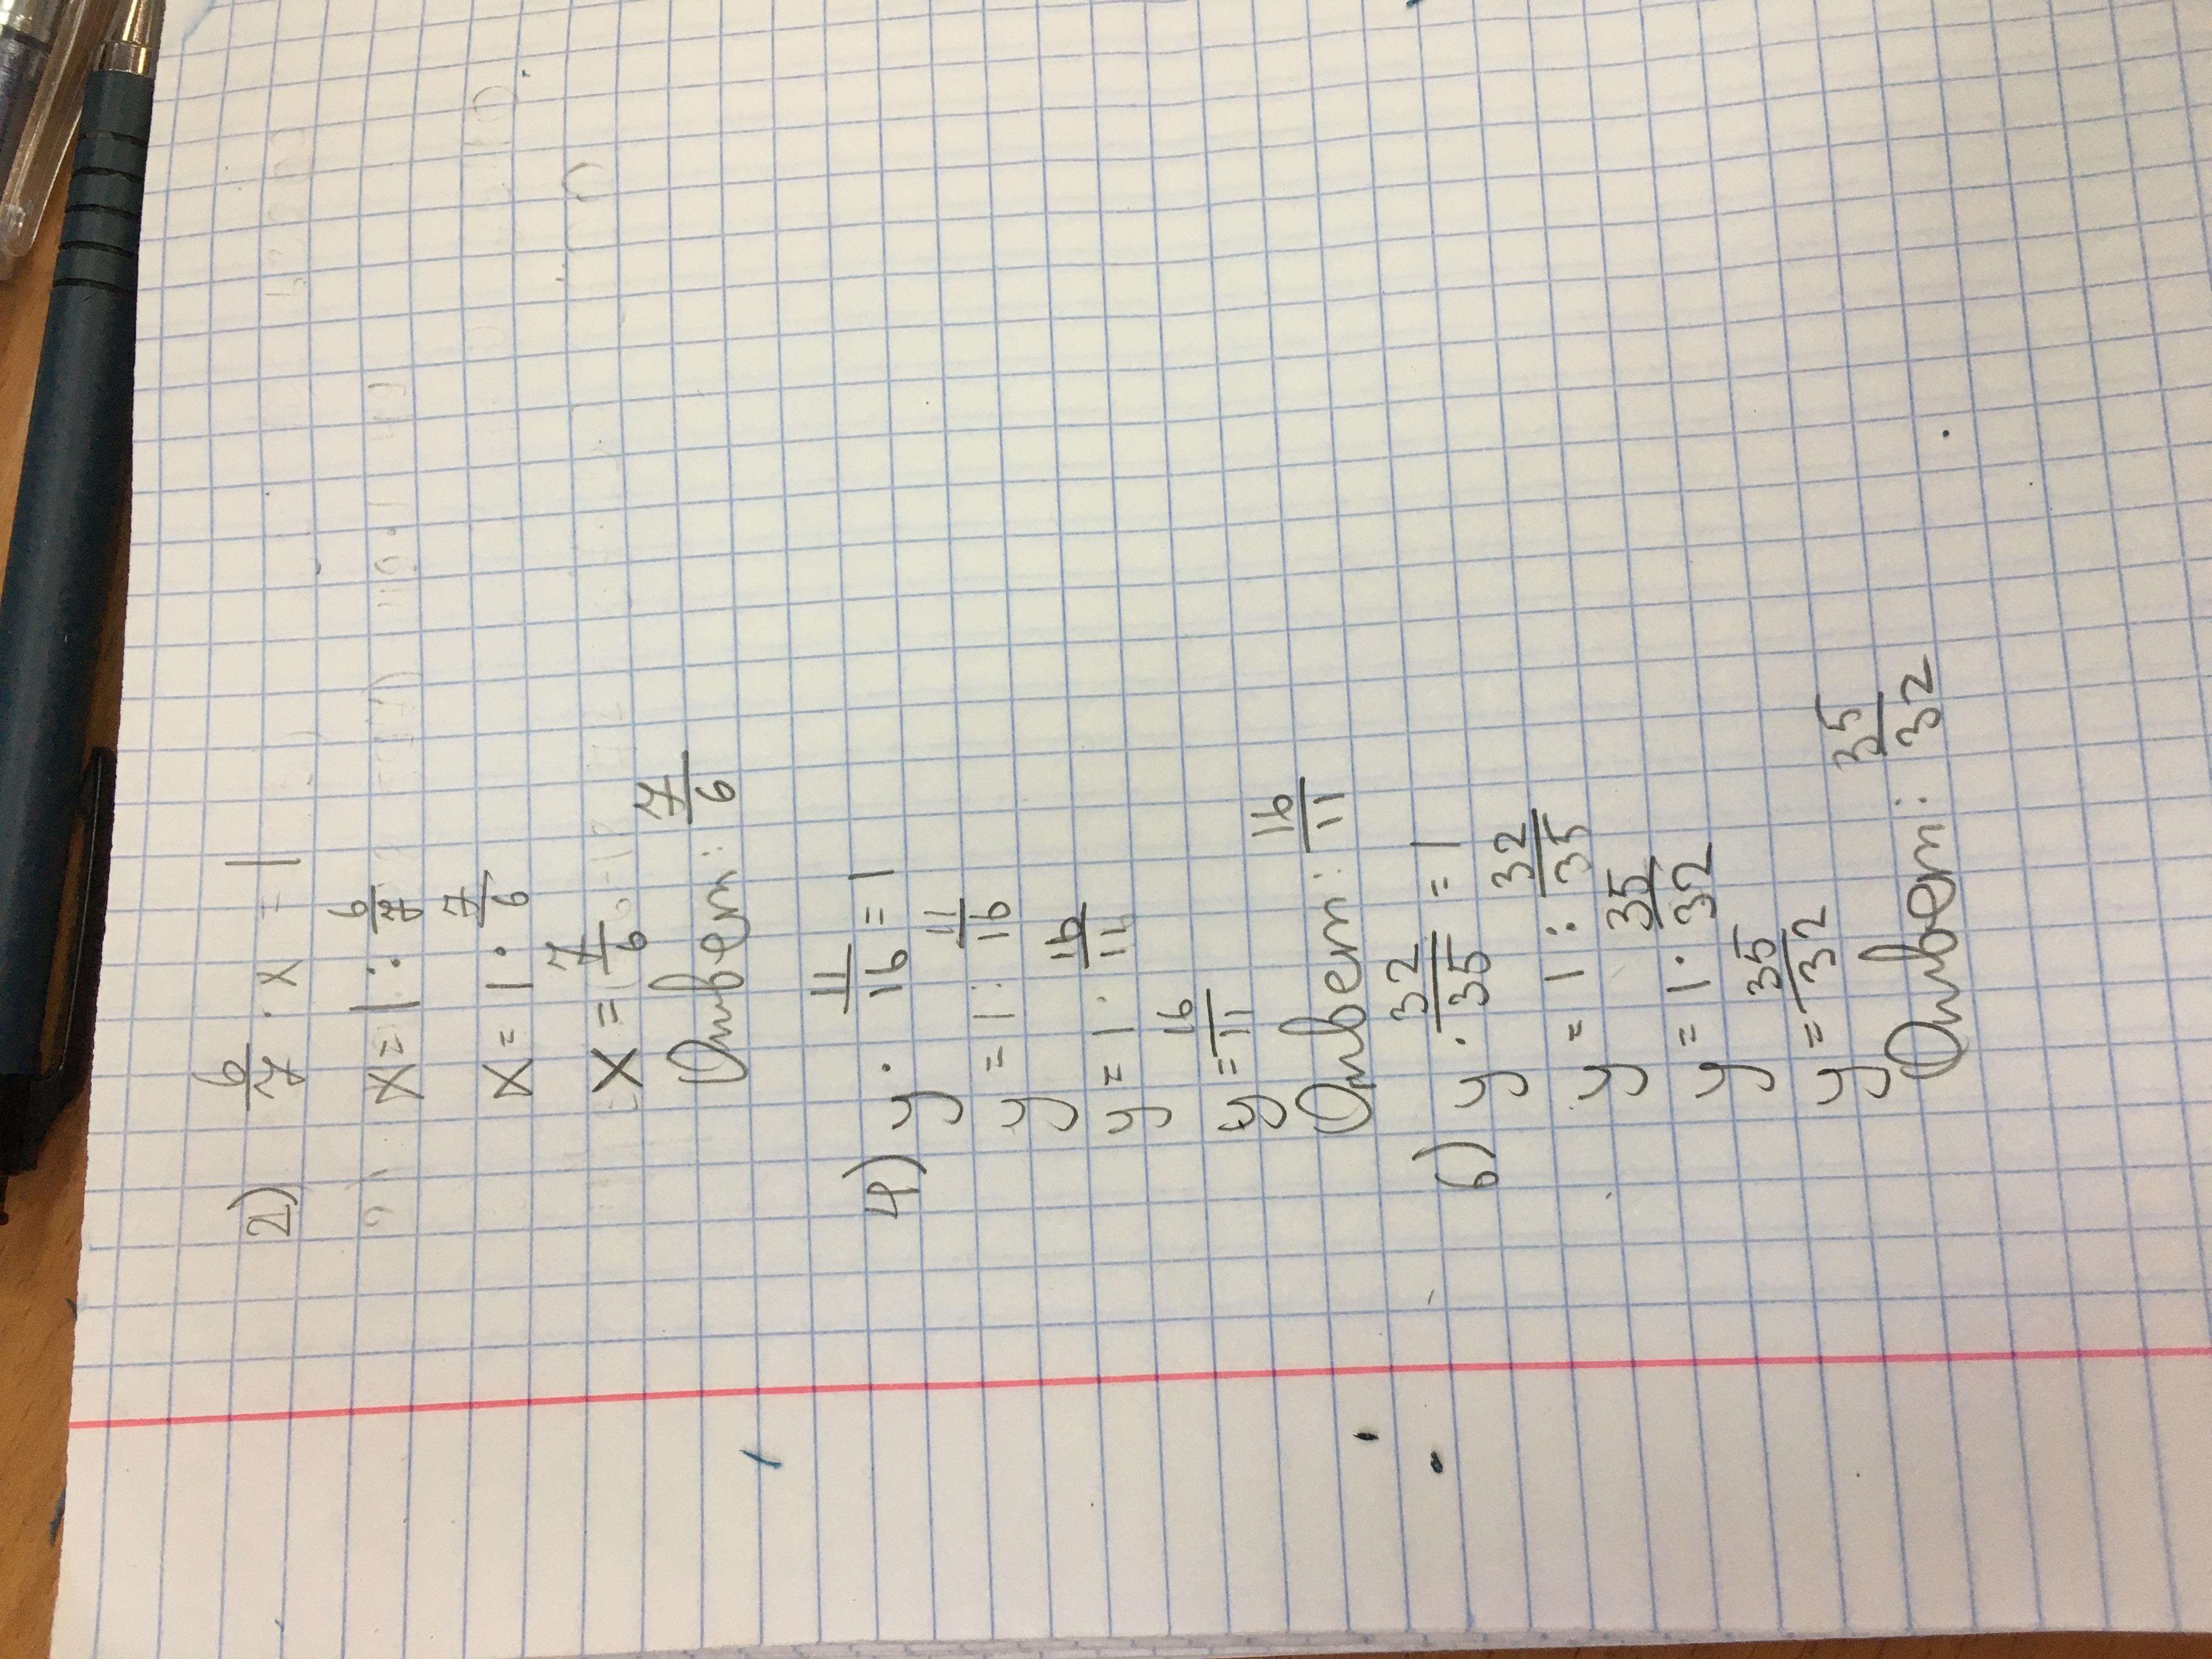 2) 6/7 · x = 1
x = 1 : 6/7
x = 1 · 7/6
x = 7/6
Ответ: 7/6
4) y · 11/16 = 1
y = 1 : 11/16
y = 1 · 16/11
y = 16/11
Ответ: 16/11
6) y · 32/35 = 1
y = 1 : 32/35
y = 1 · 35/32
y = 35/32
Ответ: 35/32